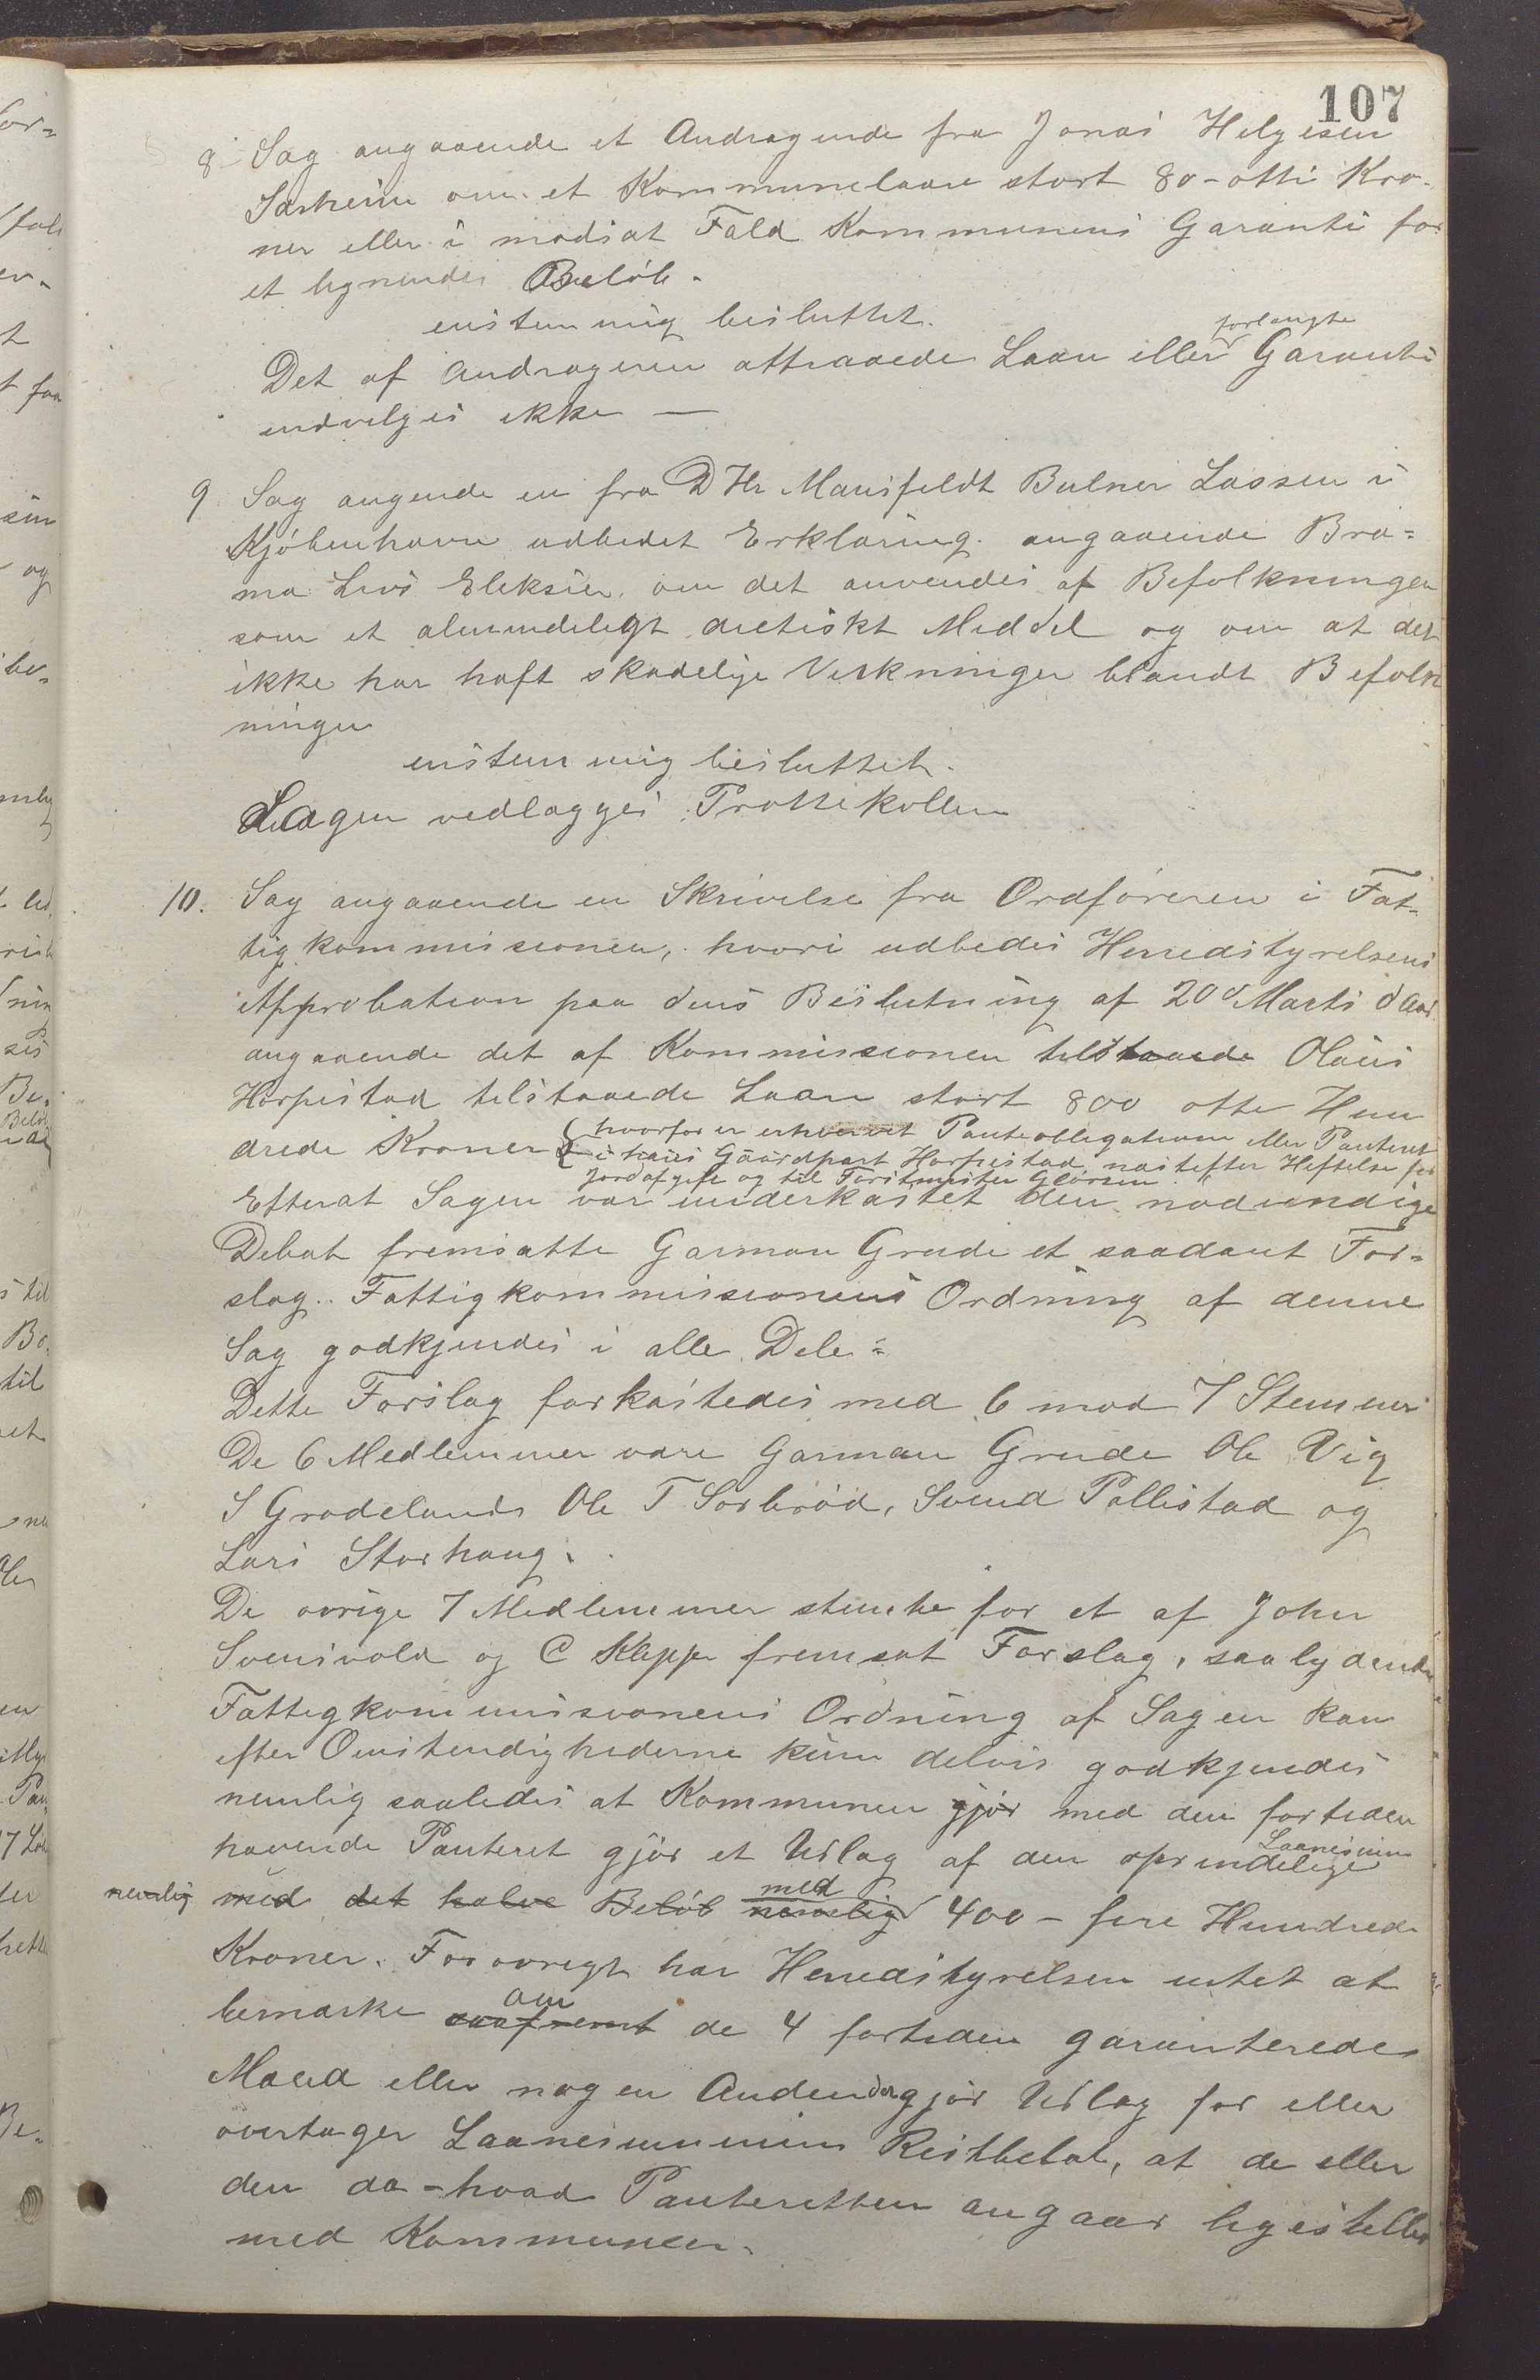 107
8 Sag angaaende et Andragende fra Jonas Helgesen
Særheim om et Kommunelaan stort 80 - otti Kro-
ner eller i modsat Fald Kommunens Garanti for
et lignende Beløb.
enstemmig besluttet.
Det af Andrageren attraaede Laan eller forlangte Garanti
indvilges ikke —
9 Sag angende en fra D Hr Mansfeldt Bulner Lassen i
Kjøbenhavn udbedet Erklæring angaaende Bra=
ma Livs Eleksier, om det anvendes af Befolkningen
som et almindeligt dietiskt Meddel og om at det
ikke har haft skadelige Virkninger blandt Befolk
ningen
enstemmig besluttet.
Sagen vedlægges Prottekollen
10. Sag angaaende en Skrivelse fra Ordføreren i Fat-
tigkommissionen, hvori udbedes Herredstyrelsens
Approbation paa dens Beslutning af 20de Marts d Aar
angaaende det af Kommissionen tilstaaede Olaus
Horpestad tilstaaede Laan stort 800 otte Hun
drede Kroner hvorfor er erhvervet Panteobligation eller Panteret
i hans Gaardpart Horpestad næstefter Heftelse for
Jordafgift og til Forstmester Glørsen
Efterat Sagen var underkastet den nødvendige
Debat fremsatte Garman Grude et saadant For=
slag. Fattigkommissionens Ordning af denne
Sag godkjendes i alle Dele=
Dette Forslag forkastedes med 6 mod 7 Stemmer
De 6 Medlemmer vare Garman Grude Ole Vig
S Grødeland Ole T Sørbrød, Svend Pollestad og
Lars Storhaug.
De øvrige 7 Medlemmer stemte for et af John
Svensvold og C Klepp fremsat Forslag, saalydende
Fattigkommissionens Ordning af Sagen kan
efter Omstendighederne kun delvis godkjendes
nemlig saaledes at Kommunen gjør med den fortiden
havende Panteret gjør et Udlæg af den oprindelige Laanesum
nemlig med det halve Beløb nemlig med 400 - fire Hundrede
Kroner. Forøvrigt har Herredstyrelsen intet at
bemærke saafremt om de 4 fortiden garanterede
Mænd eller nogen Anden der gjør Udlæg for eller
overtager Laanesummens Restbeløb, at de eller
den da - hvad Panteretten angaar ligestilles
med Kommunen.